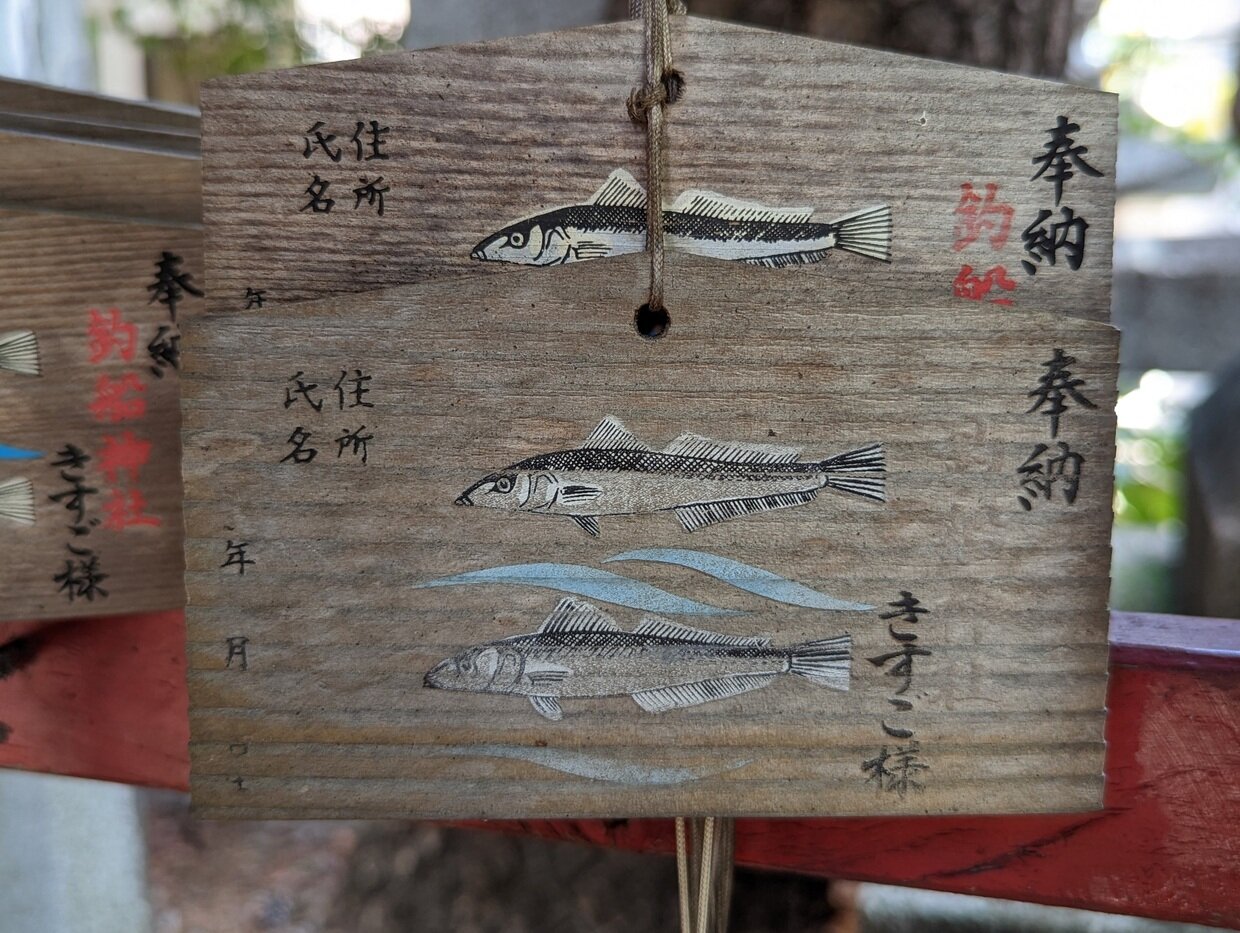 奉納
釣船
住所
氏名
年
奉納
きすご様
住所
氏名
年
月
奉納
釣船神社
きすご様